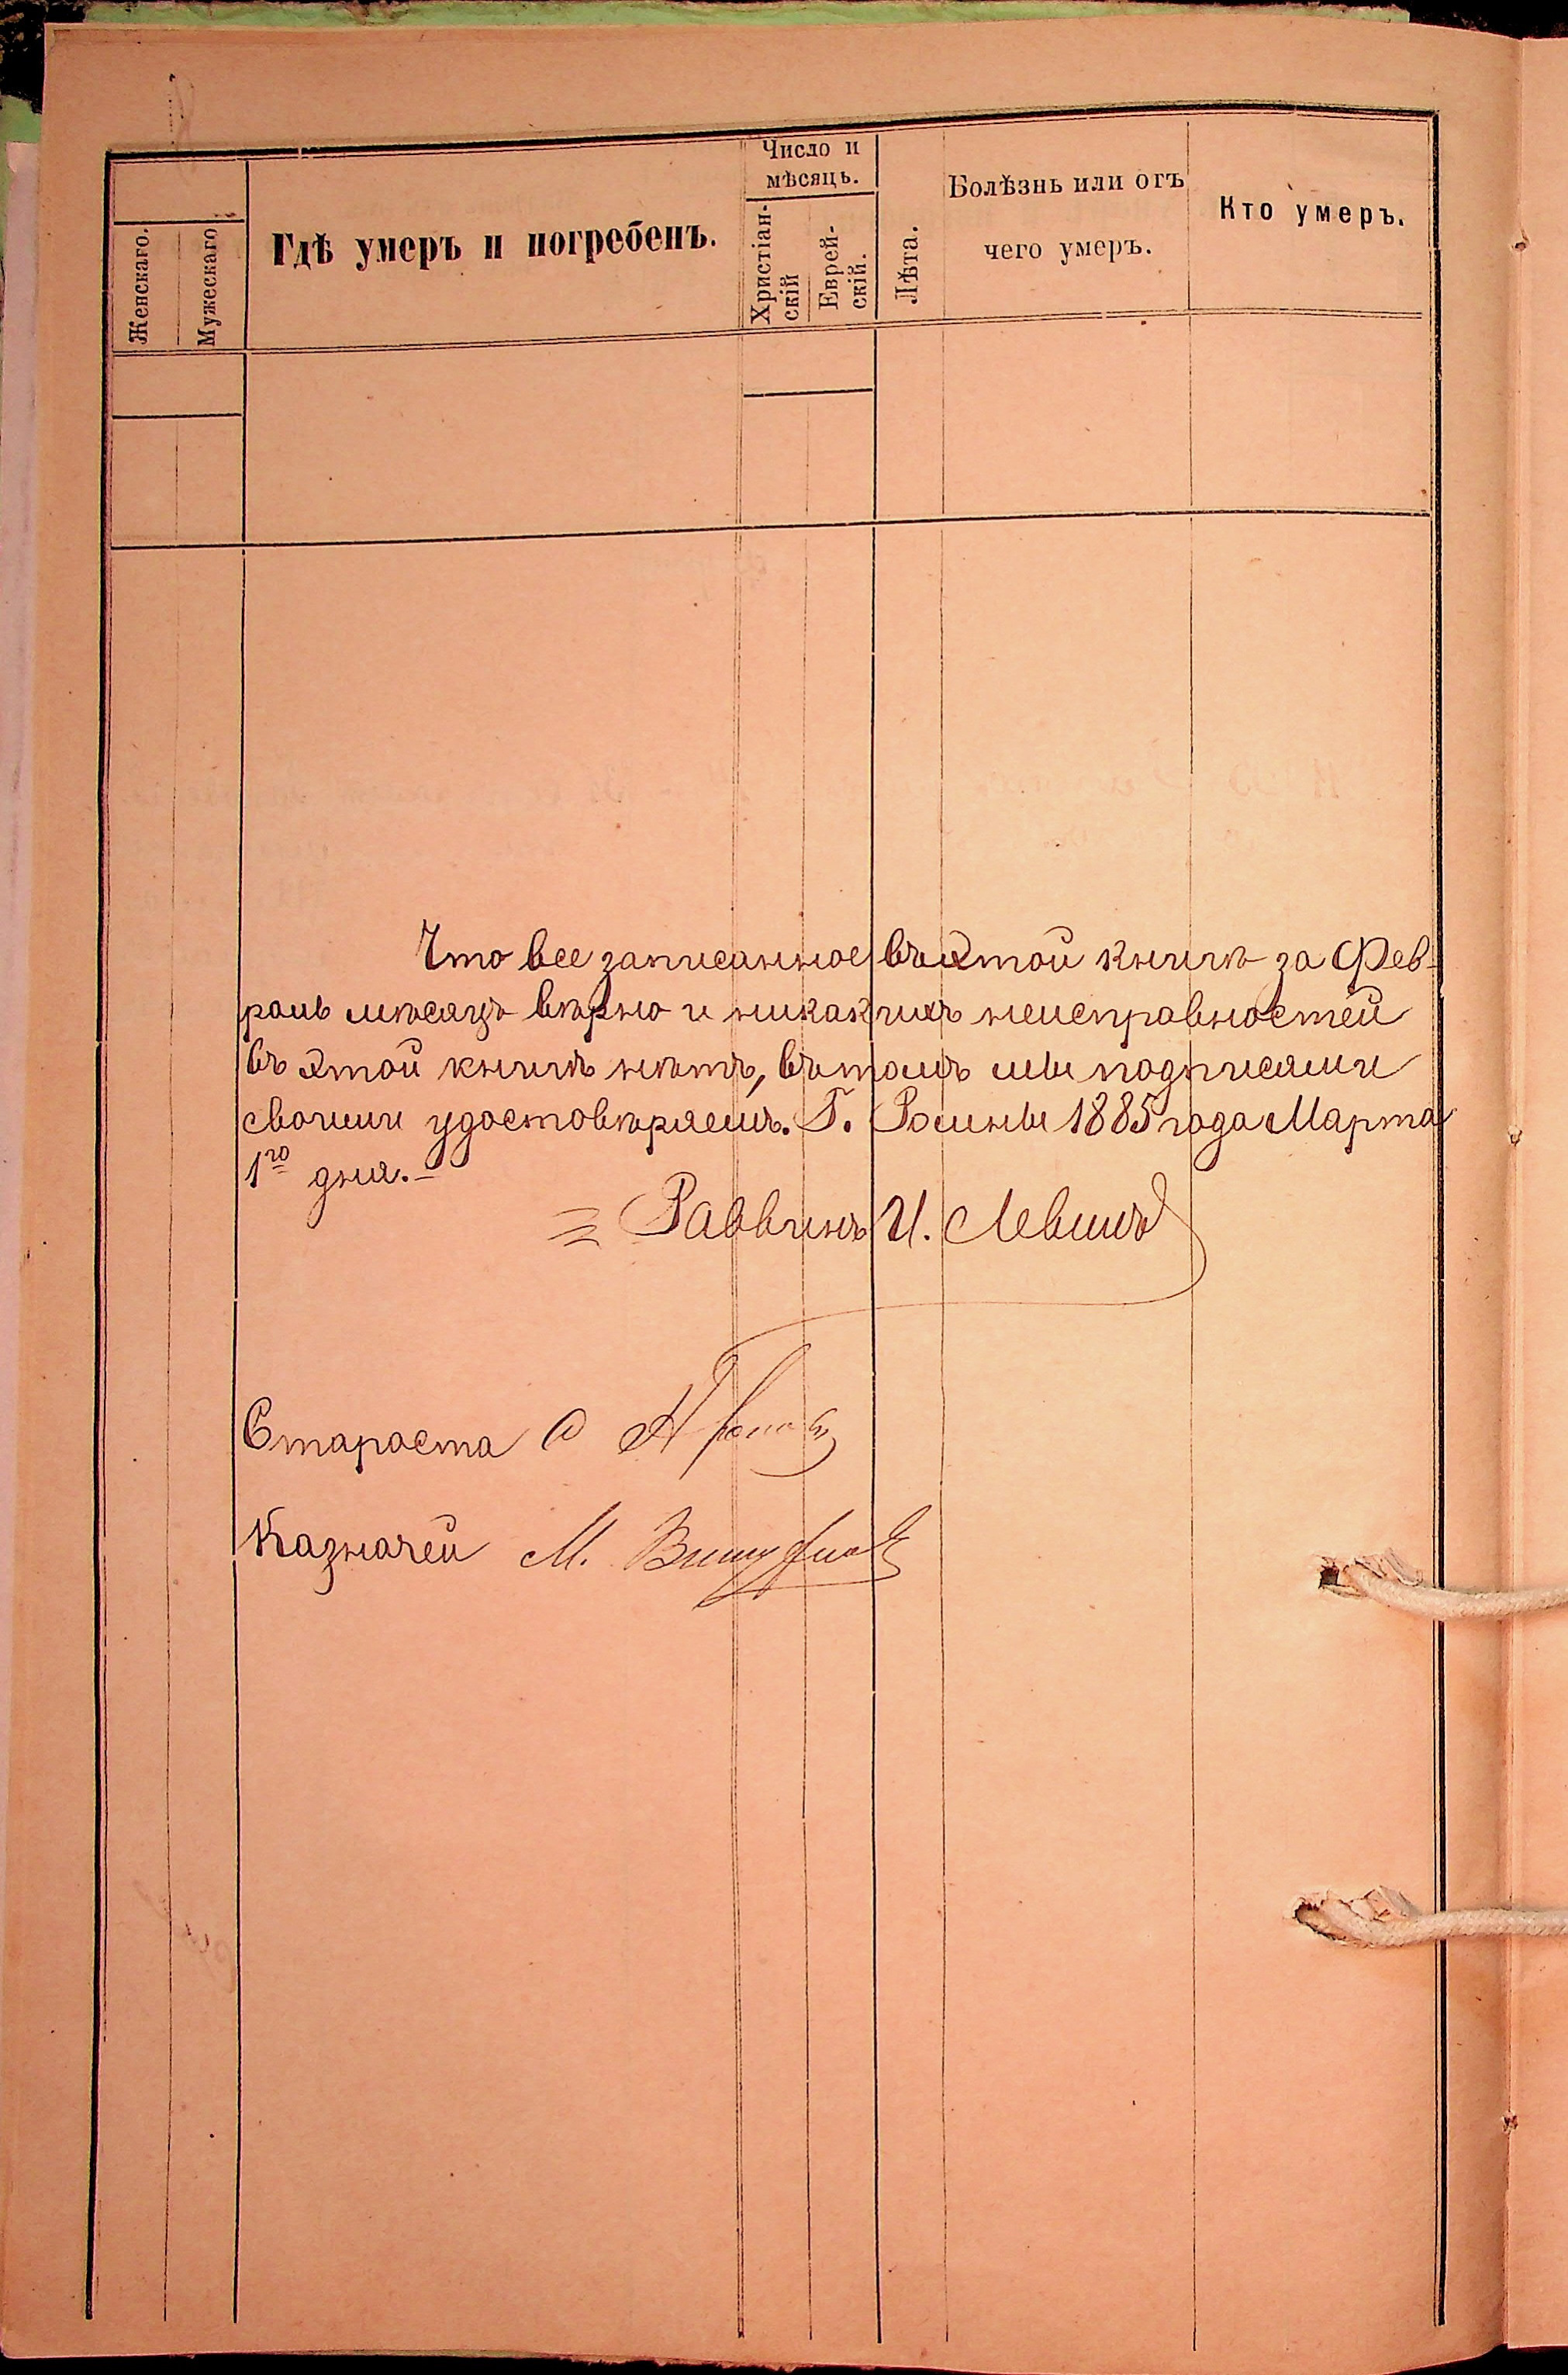 Женскаго.
Мужескаго
Гдѣ умеръ и погребенъ.
Число и
мѣсяцъ.
Христіан-
скій
Еврей-
скій.
Лѣта.
Болѣзнь или отъ
чего умеръ.
Кто умеръ.
Что все записанное въ этой книгѣ за Фев-
раль мѣсяцъ вѣрно и никакихъ неисправностей
въ этой книгѣ нѣтъ, въ томъ мы подписями
своими удостовѣряемъ. Г. 1885 года Марта
1го дня.-
Раввинъ И. Левинъ
Староста
Казначей М.